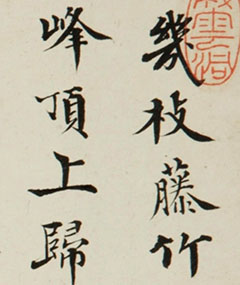 幾枝藤竹
峰頂上歸